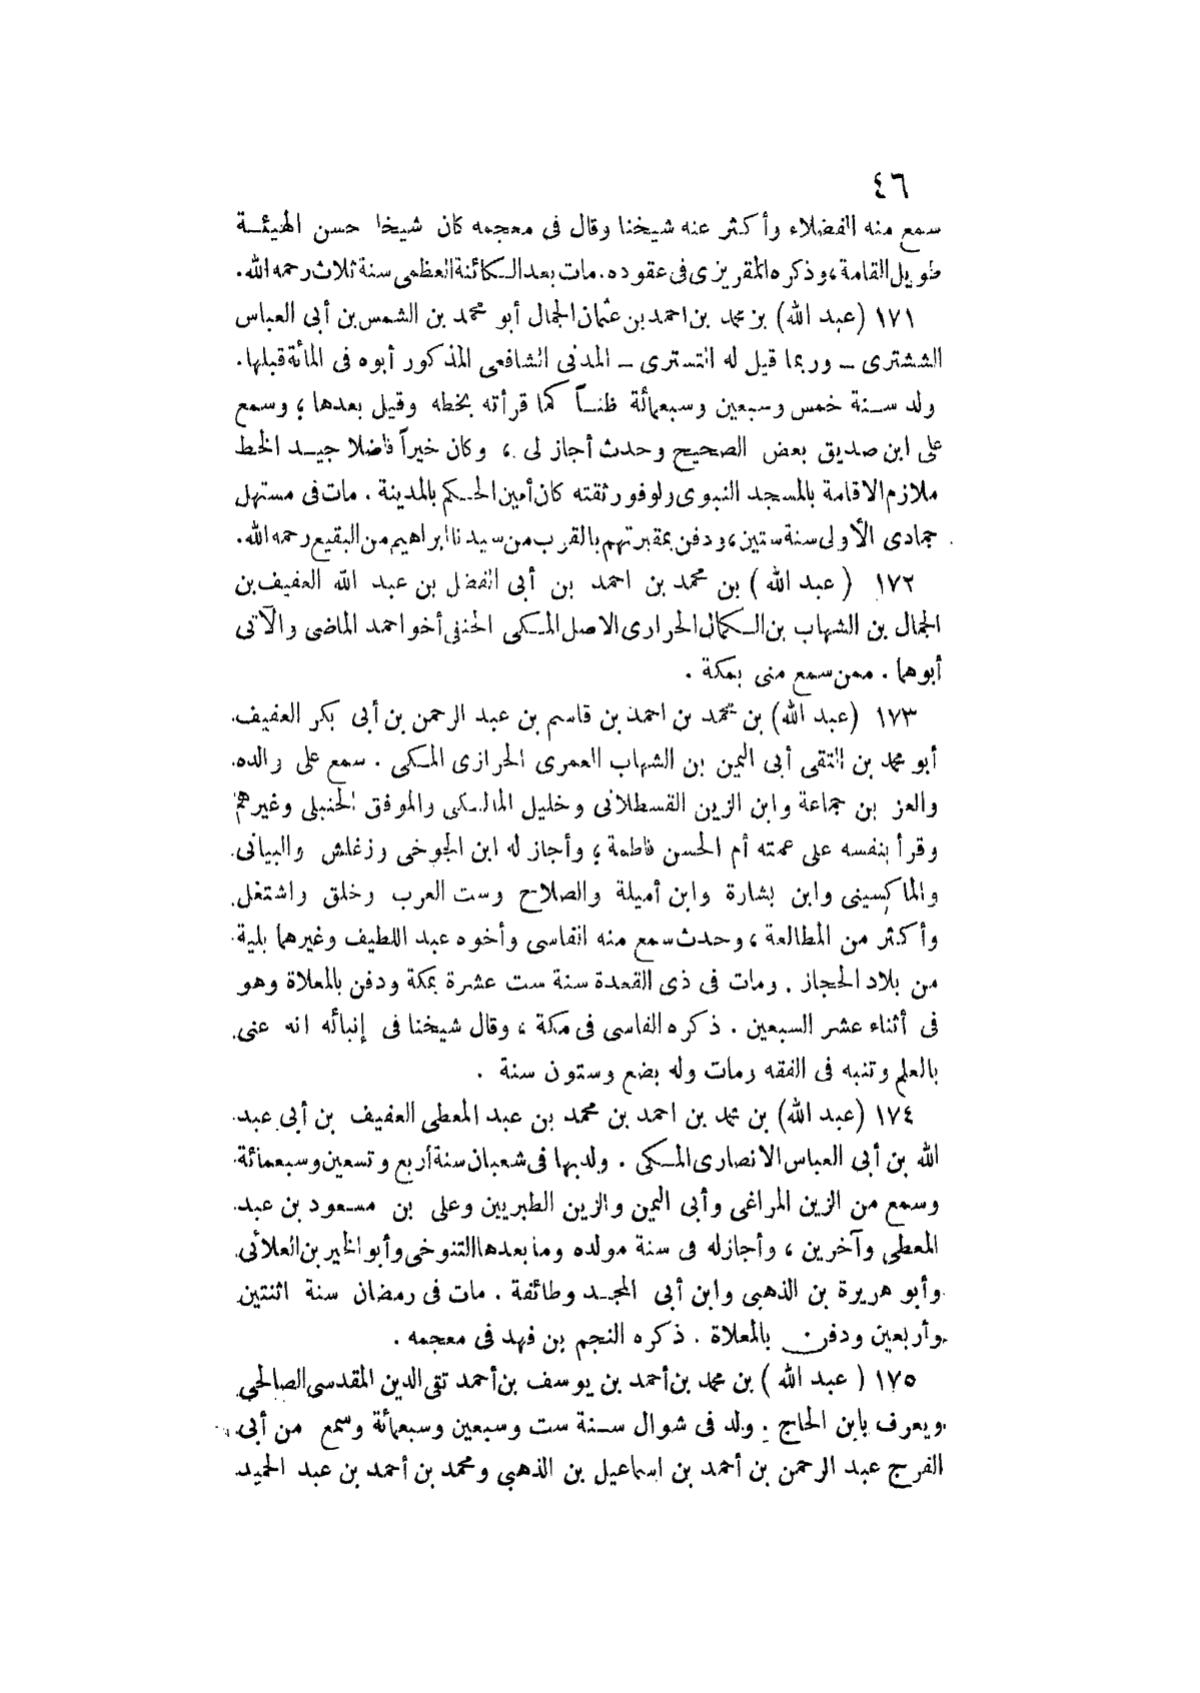 ٤٦
سمع منه الفضلاء وأكثر عنه شيخنا وقال فى معجمه كان شيخا حسن الهيئة
طويل القامة، وذكره المقريزى فى عقوده. مات بعد الكائنة العظمى سنة ثلاث رحمه الله.
١٧١ (عبد الله) بن محمد بن احمد بن عثمان الجمال أبو محمد بن الشمس بن أبى العباس
الششترى ــ وربما قيل له التسترى ــ المدنى الشافعى المذكور أبوه فى المائة قبلها.
ولد سنة خمس وسبعين وسبعمائة ظناً كما قرأته بخطه وقيل بعدها؛ وسمع
على ابن صديق بعض الصحيح وحدث أجاز لى، وكان خيراً فاضلا جيد الخط
ملازم الاقامة بالمسجد النبوى ولوفور ثقته كان أمين الحكم بالمدينة. مات فى مستهل
جمادى الأولى سنة ستين، ودفن بمقبرتهم بالقرب من سيدنا ابراهيم من البقيع رحمه الله.
١٧٢ (عبد الله) بن محمد بن احمد بن أبى الفضل بن عبد الله العفيف بن
الجمال بن الشهاب بن الكمال الحرارى الاصل المكى الحنفى أخو احمد الماضى والآتى
أبوهما. ممن سمع منى بمكة.
١٧٣ (عبد الله) بن محمد بن احمد بن قاسم بن عبد الرحمن بن أبى بكر العفيف
أبو محمد بن التقى أبى اليمن بن الشهاب العمرى الحرازى المكى. سمع على والده
والعز بن جماعة وابن الزين القسطلانى وخليل المالكى والموفق الحنبلى وغيرهم
وقرأ بنفسه على عمته أم الحسن فاطمة؛ وأجاز له ابن الجوخى وزغلش والبيانى
والماكسينى وابن بشارة وابن أميلة والصلاح وست العرب وخلق واشتغل
وأكثر من المطالعة، وحدث سمع منه الفاسى وأخوه عبد اللطيف وغيرهما بلية
من بلاد الحجاز. ومات فى ذى القعدة سنة ست عشرة بمكة ودفن بالمعلاة وهو
فى أثناء عشر السبعين. ذكره الفاسى فى مكة، وقال شيخنا فى إنبائه انه عنى
بالعلم وتنبه فى الفقه ومات وله بضع وستون سنة.
١٧٤ (عبد الله) بن محمد بن احمد بن محمد بن عبد المعطى العفيف بن أبى عبد
الله بن أبى العباس الانصارى المكى. ولد بها فى شعبان سنة أربع وتسعين وسبعمائة
وسمع من الزين المراغى وأبى اليمن والزين الطبريين وعلى بن مسعود بن عبد
المعطى وآخرين، وأجاز له فى سنة مولده وما بعدها التنوخى وأبو الخير بن العلائى
وأبو هريرة بن الذهبى وابن أبى المجد وطائفة. مات فى رمضان سنة اثنتين
وأربعين ودفن بالمعلاة. ذكره النجم بن فهد فى معجمه.
١٧٥ (عبد الله) بن محمد بن أحمد بن يوسف بن أحمد تقى الدين المقدسى الصالحى
ويعرف بابن الحاج. ولد فى شوال سنة ست وسبعين وسبعمائة وسمع من أبى
الفرج عبد الرحمن بن أحمد بن اسماعيل بن الذهبى ومحمد بن أحمد بن عبد الحميد